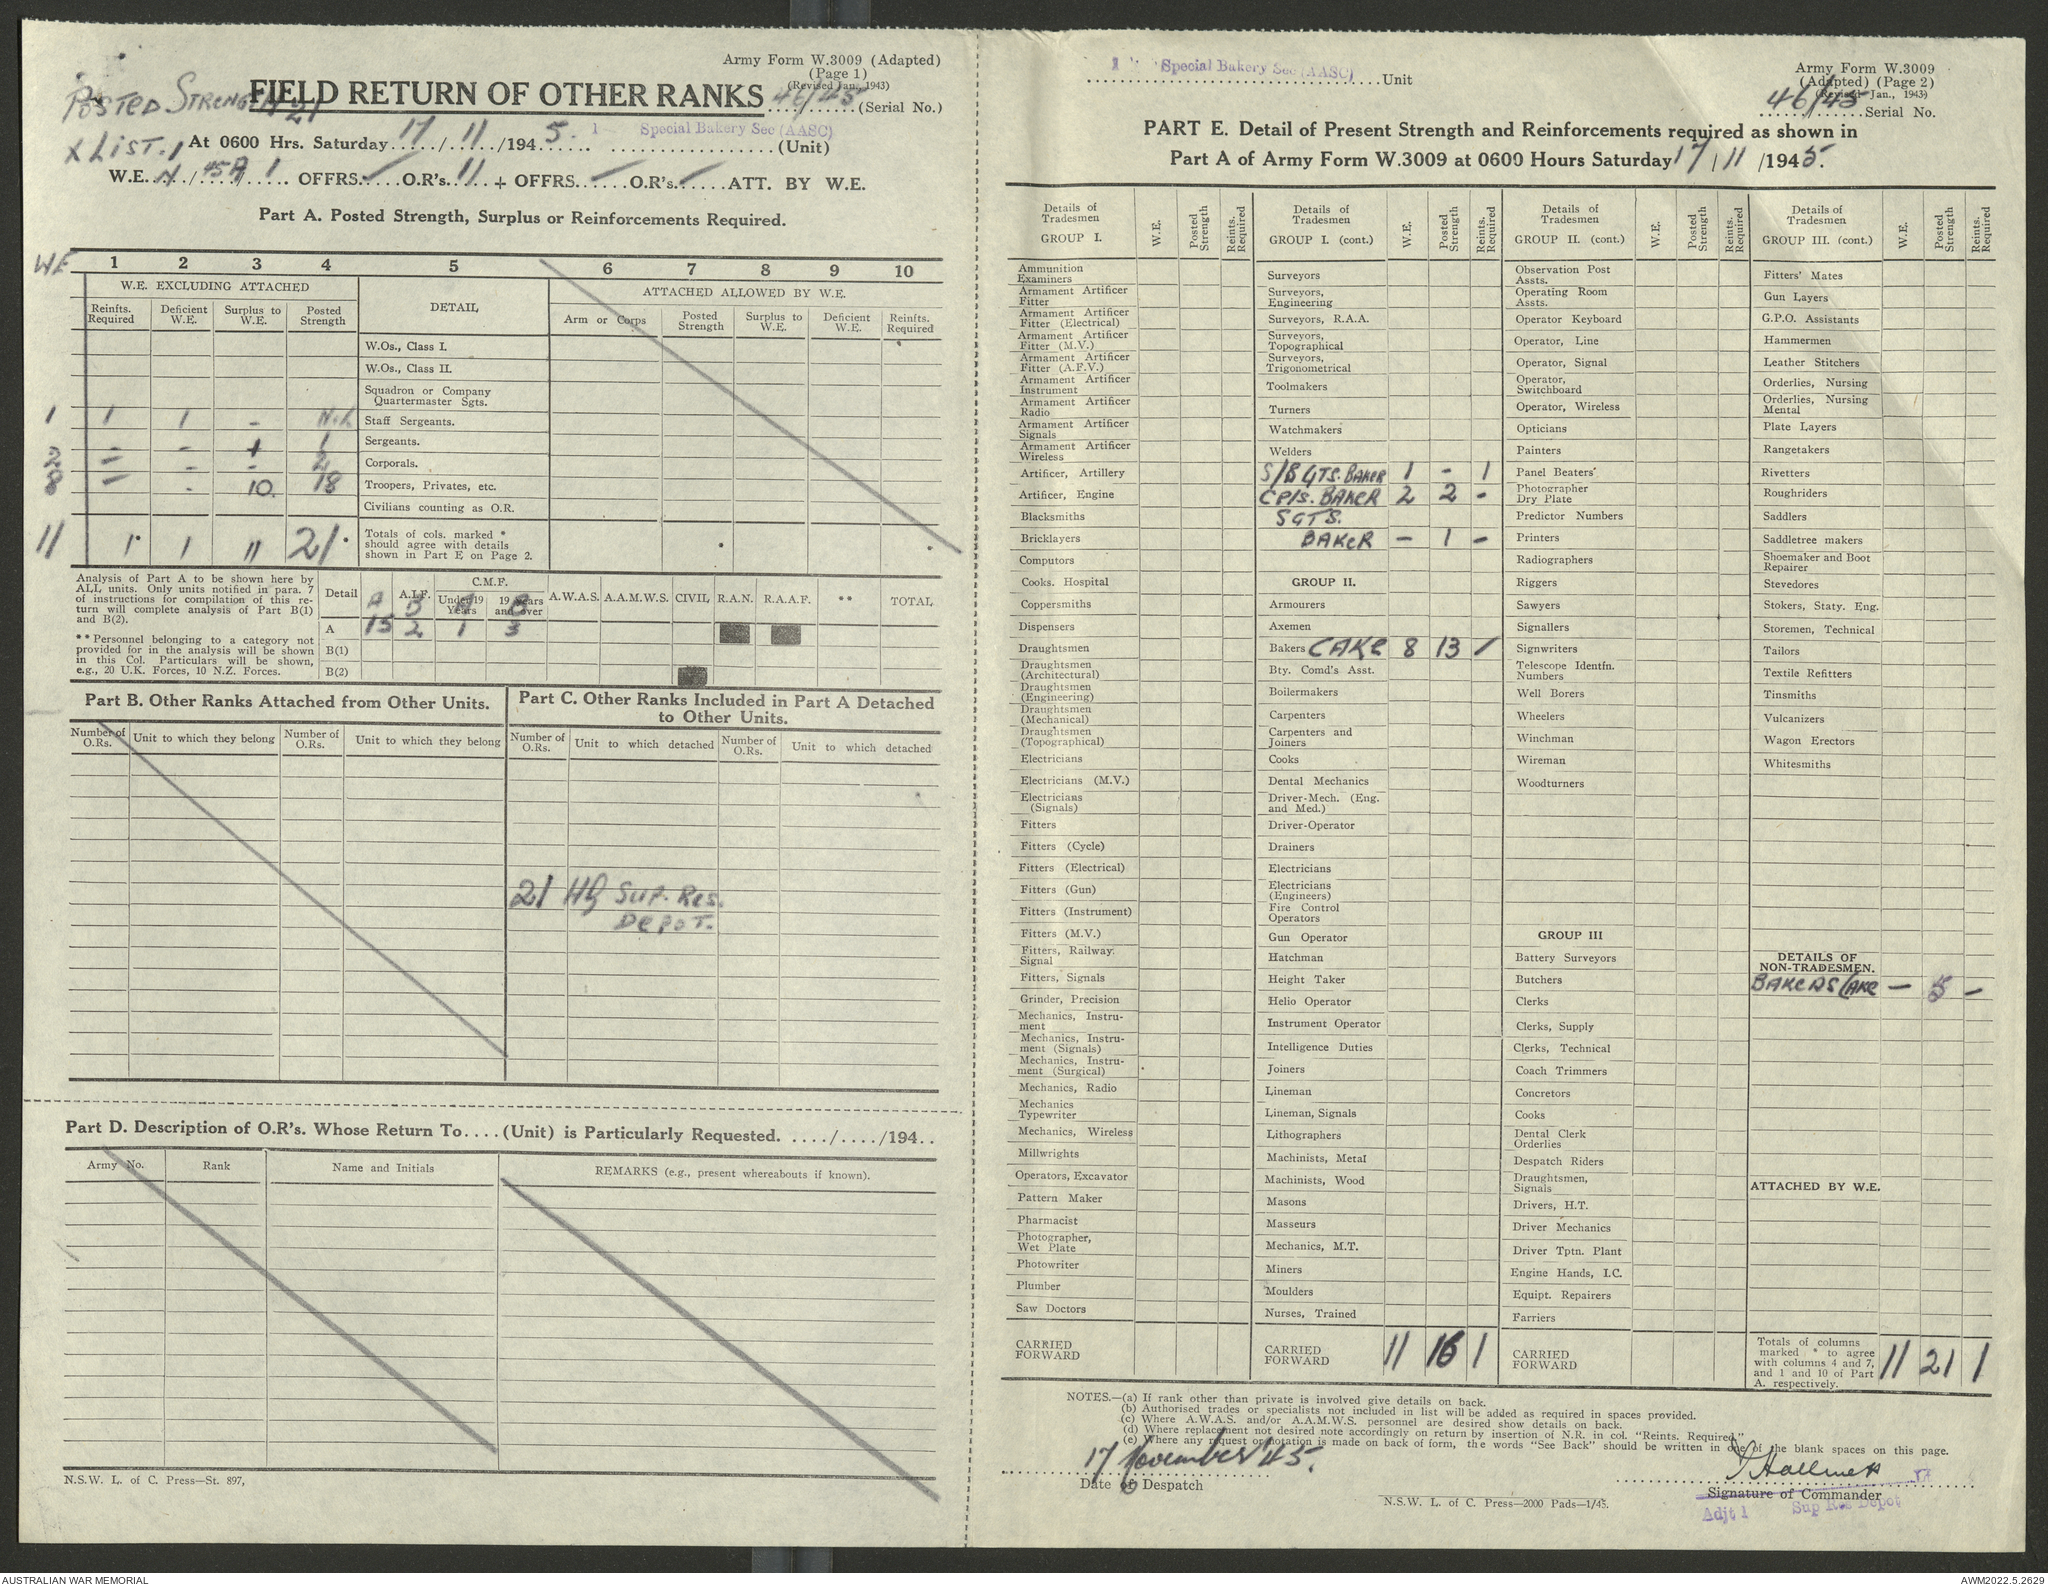 Army Form W.3009 (Adapted)
(Page 1)
(Revised Jan., 1943)
POSTED STRENGTH 21
FIELD RETURN OF OTHER RANKS 46/45 (Serial No.)
X LIST. 1
At 0600 Hrs. Saturday 17/11/1945. 1 Special Bakery Sec (AASC) (Unit)
W.E. / 45A / 1 OFFRS. O.R's. 11 + OFFRS. O.R's. ATT. BY W.E.
Part A. Posted Strength, Surplus or Reinforcements Required.
WE 1 2 3 4 5 6 7 8 9 10
W.E. EXCLUDING ATTACHED DETAIL ATTACHED ALLOWED BY W.E.
Reinfts. Required Deficient W.E. Surplus to W.E. Posted Strength Arm or Corps Posted Strength Surplus to W.E. Deficient W.E. Reinfts. Required
W.Os., Class I.
W.Os., Class II.
Squadron or Company
Quartermaster Sgts.
1 1 1 - Staff Sergeants.
- - + 1 Sergeants.
2 - - - 2 Corporals.
8 - - 10. 18 Troopers, Privates, etc.
Civilians counting as O.R.
11 1* 1 11 21* Totals of cols. marked *
should agree with details
shown in Part E on Page 2.
Analysis of Part A to be shown here by
ALL units. Only units notified in para. 7
of instructions for compilation of this re-
turn will complete analysis of Part B(1)
and B(2).
** Personnel belonging to a category not
provided for in the analysis will be shown
in this Col. Particulars will be shown,
e.g., 20 U.K. Forces, 10 N.Z. Forces.
Detail A.I.F. C.M.F. Under 19 Years 19 years and over A.W.A.S. A.A.M.W.S. CIVIL R.A.N. R.A.A.F. ** TOTAL
A B A B
A 15 2 1 3
B(1)
B(2)
Part B. Other Ranks Attached from Other Units.
Number of O.Rs. Unit to which they belong Number of O.Rs. Unit to which they belong
Part C. Other Ranks Included in Part A Detached
to Other Units.
Number of O.Rs. Unit to which detached Number of O.Rs. Unit to which detached
21 HQ SUP. RES.
DEPOT.
Part D. Description of O.R's. Whose Return To....(Unit) is Particularly Requested. ..../..../194..
Army No. Rank Name and Initials REMARKS (e.g., present whereabouts if known).
N.S.W. L. of C. Press—St. 897,
1 Special Bakery Sec (AASC) Unit
Army Form W.3009
(Adapted) (Page 2)
(Revised Jan., 1943)
46/45
Serial No.
PART E. Detail of Present Strength and Reinforcements required as shown in
Part A of Army Form W.3009 at 0600 Hours Saturday 17/11/1945.
Details of Tradesmen
GROUP I.
W.E. Posted Strength Reints. Required
Ammunition Examiners
Armament Artificer Fitter
Armament Artificer Fitter (Electrical)
Armament Artificer Fitter (M.V.)
Armament Artificer Fitter (A.F.V.)
Armament Artificer Instrument
Armament Artificer Radio
Armament Artificer Signals
Armament Artificer Wireless
Artificer, Artillery
Artificer, Engine
Blacksmiths
Bricklayers
Computors
Cooks. Hospital
Coppersmiths
Dispensers
Draughtsmen
Draughtsmen (Architectural)
Draughtsmen (Engineering)
Draughtsmen (Mechanical)
Draughtsmen (Topographical)
Electricians
Electricians (M.V.)
Electricians (Signals)
Fitters
Fitters (Cycle)
Fitters (Electrical)
Fitters (Gun)
Fitters (Instrument)
Fitters (M.V.)
Fitters, Railway. Signal
Fitters, Signals
Grinder, Precision
Mechanics, Instru-
ment
Mechanics, Instru-
ment (Signals)
Mechanics, Instru-
ment (Surgical)
Mechanics, Radio
Mechanics Typewriter
Mechanics, Wireless
Millwrights
Operators, Excavator
Pattern Maker
Pharmacist
Photographer, Wet Plate
Photowriter
Plumber
Saw Doctors
CARRIED FORWARD
Details of Tradesmen
GROUP I. (cont.)
W.E. Posted Strength Reints. Required
Surveyors
Surveyors, Engineering
Surveyors, R.A.A.
Surveyors, Topographical
Surveyors, Trigonometrical
Toolmakers
Turners
Watchmakers
Welders
S/SGTS. BAKER 1 - 1
CPLS. BAKER 2 2 -
SGTS.
BAKER - 1 -
GROUP II.
Armourers
Axemen
Bakers CAKE 8 13 /
Bty. Comd's Asst.
Boilermakers
Carpenters
Carpenters and Joiners
Cooks
Dental Mechanics
Driver-Mech. (Eng. and Med.)
Driver-Operator
Drainers
Electricians
Electricians (Engineers)
Fire Control Operators
Gun Operator
Hatchman
Height Taker
Helio Operator
Instrument Operator
Intelligence Duties
Joiners
Lineman
Lineman, Signals
Lithographers
Machinists, Metal
Machinists, Wood
Masons
Masseurs
Mechanics, M.T.
Miners
Moulders
Nurses, Trained
CARRIED FORWARD 11 16 1
Details of Tradesmen
GROUP II. (cont.)
W.E. Posted Strength Reints. Required
Observation Post Assts.
Operating Room Assts.
Operator Keyboard
Operator, Line
Operator, Signal
Operator, Switchboard
Operator, Wireless
Opticians
Painters
Panel Beaters
Photographer Dry Plate
Predictor Numbers
Printers
Radiographers
Riggers
Sawyers
Signallers
Signwriters
Telescope Identfn. Numbers
Well Borers
Wheelers
Winchman
Wireman
Woodturners
GROUP III
Battery Surveyors
Butchers
Clerks
Clerks, Supply
Clerks, Technical
Coach Trimmers
Concretors
Cooks
Dental Clerk Orderlies
Despatch Riders
Draughtsmen, Signals
Drivers, H.T.
Driver Mechanics
Driver Tptn. Plant
Engine Hands, I.C.
Equipt. Repairers
Farriers
CARRIED FORWARD
Details of Tradesmen
GROUP III. (cont.)
W.E. Posted Strength Reints. Required
Fitters' Mates
Gun Layers
G.P.O. Assistants
Hammermen
Leather Stitchers
Orderlies, Nursing
Orderlies, Nursing Mental
Plate Layers
Rangetakers
Rivetters
Roughriders
Saddlers
Saddletree makers
Shoemaker and Boot Repairer
Stevedores
Stokers, Staty. Eng.
Storemen, Technical
Tailors
Textile Refitters
Tinsmiths
Vulcanizers
Wagon Erectors
Whitesmiths
DETAILS OF
NON-TRADESMEN.
BAKERS CAKE - 5 -
ATTACHED BY W.E.
Totals of columns
marked * to agree
with columns 4 and 7,
and 1 and 10 of Part
A. respectively. 11 21 1
NOTES.—(a) If rank other than private is involved give details on back.
(b) Authorised trades or specialists not included in list will be added as required in spaces provided.
(c) Where A.W.A.S. and/or A.A.M.W.S. personnel are desired show details on back.
(d) Where replacement not desired note accordingly on return by insertion of N.R. in col. "Reints. Required."
(e) Where any request or notation is made on back of form, the words "See Back" should be written in one of the blank spaces on this page.
17 November '45.
Date of Despatch
Signature of Commander
Adjt 1 Sup Res Depot
N.S.W. L. of C. Press—2000 Pads—1/45.
AUSTRALIAN WAR MEMORIAL
AWM2022.5.2629